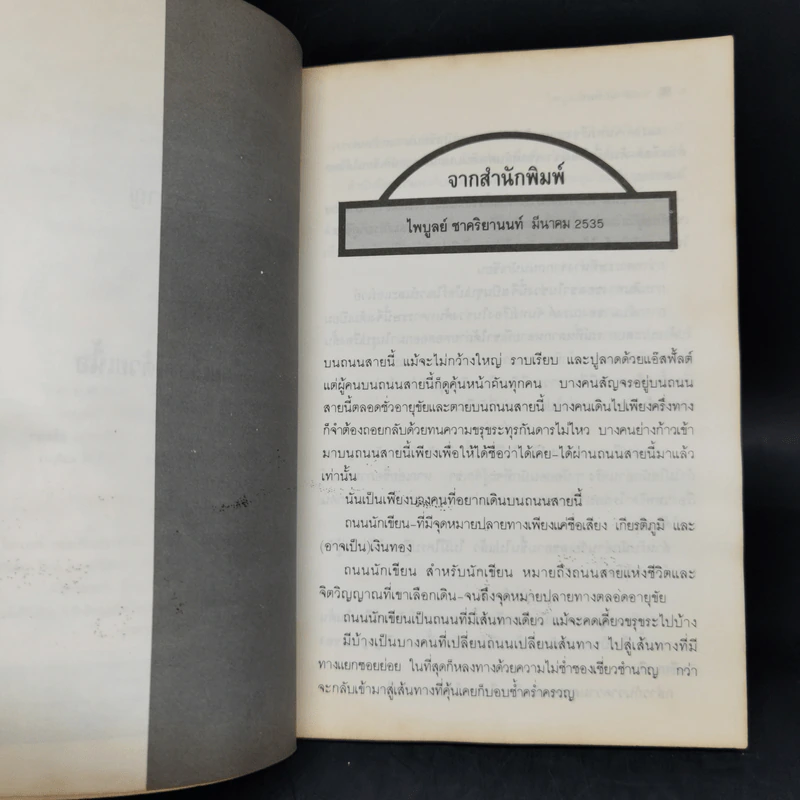 จากสำนักพิมพ์
ไพบูลย์ ชาคริยานนท์ มีนาคม 2535
บนถนนสายนี้ แม้จะไม่กว้างใหญ่ ราบเรียบ และปูลาดด้วยแอ๊สฟั้ลต์
แต่ผู้คนบนถนนสายนี้ก็ดูคุ้นหน้าคันทุกคน บางคนสัญจรอยู่บนถนน
สายนี้ตลอดชั่วอายุขัยและตายบนถนนสายนี้ บางคนเดินไปเพียงครึ่งทาง
ก็จำต้องถอยกลับด้วยทนความขรุขระทุรกันดารไม่ไหว บางคนย่างก้าวเข้า
มาบนถนนสายนี้เพียงเพื่อให้ได้ชื่อว่าได้เคย-ได้ผ่านถนนสายนี้มาแล้ว
เท่านั้น
นั่นเป็นเพียงบางคนที่อยากเดินบนถนนสายนี้
ถนนนักเขียน-ที่มีจุดหมายปลายทางเพียงแค่ชื่อเสียง เกียรติภูมิ และ
(อาจเป็น)เงินทอง
ถนนนักเขียน สำหรับนักเขียน หมายถึงถนนสายแห่งชีวิตและ
จิตวิญญาณที่เขาเลือกเดิน-จนถึงจุดหมายปลายทางตลอดอายุขัย
ถนนนักเขียนเป็นถนนที่มีเส้นทางเดียว แม้จะคดเคี้ยวขรุขระไปบ้าง
มีบ้างเป็นบางคนที่เปลี่ยนถนนเปลี่ยนเส้นทาง ไปสู่เส้นทางที่มี
ทางแยกซอยย่อย ในที่สุดก็หลงทางด้วยความไม่ช่ำชองเชี่ยวชำนาญ กว่า
จะกลับเข้ามาสู่เส้นทางที่คุ้นเคยก็บอบช้ำคร่ำครวญ